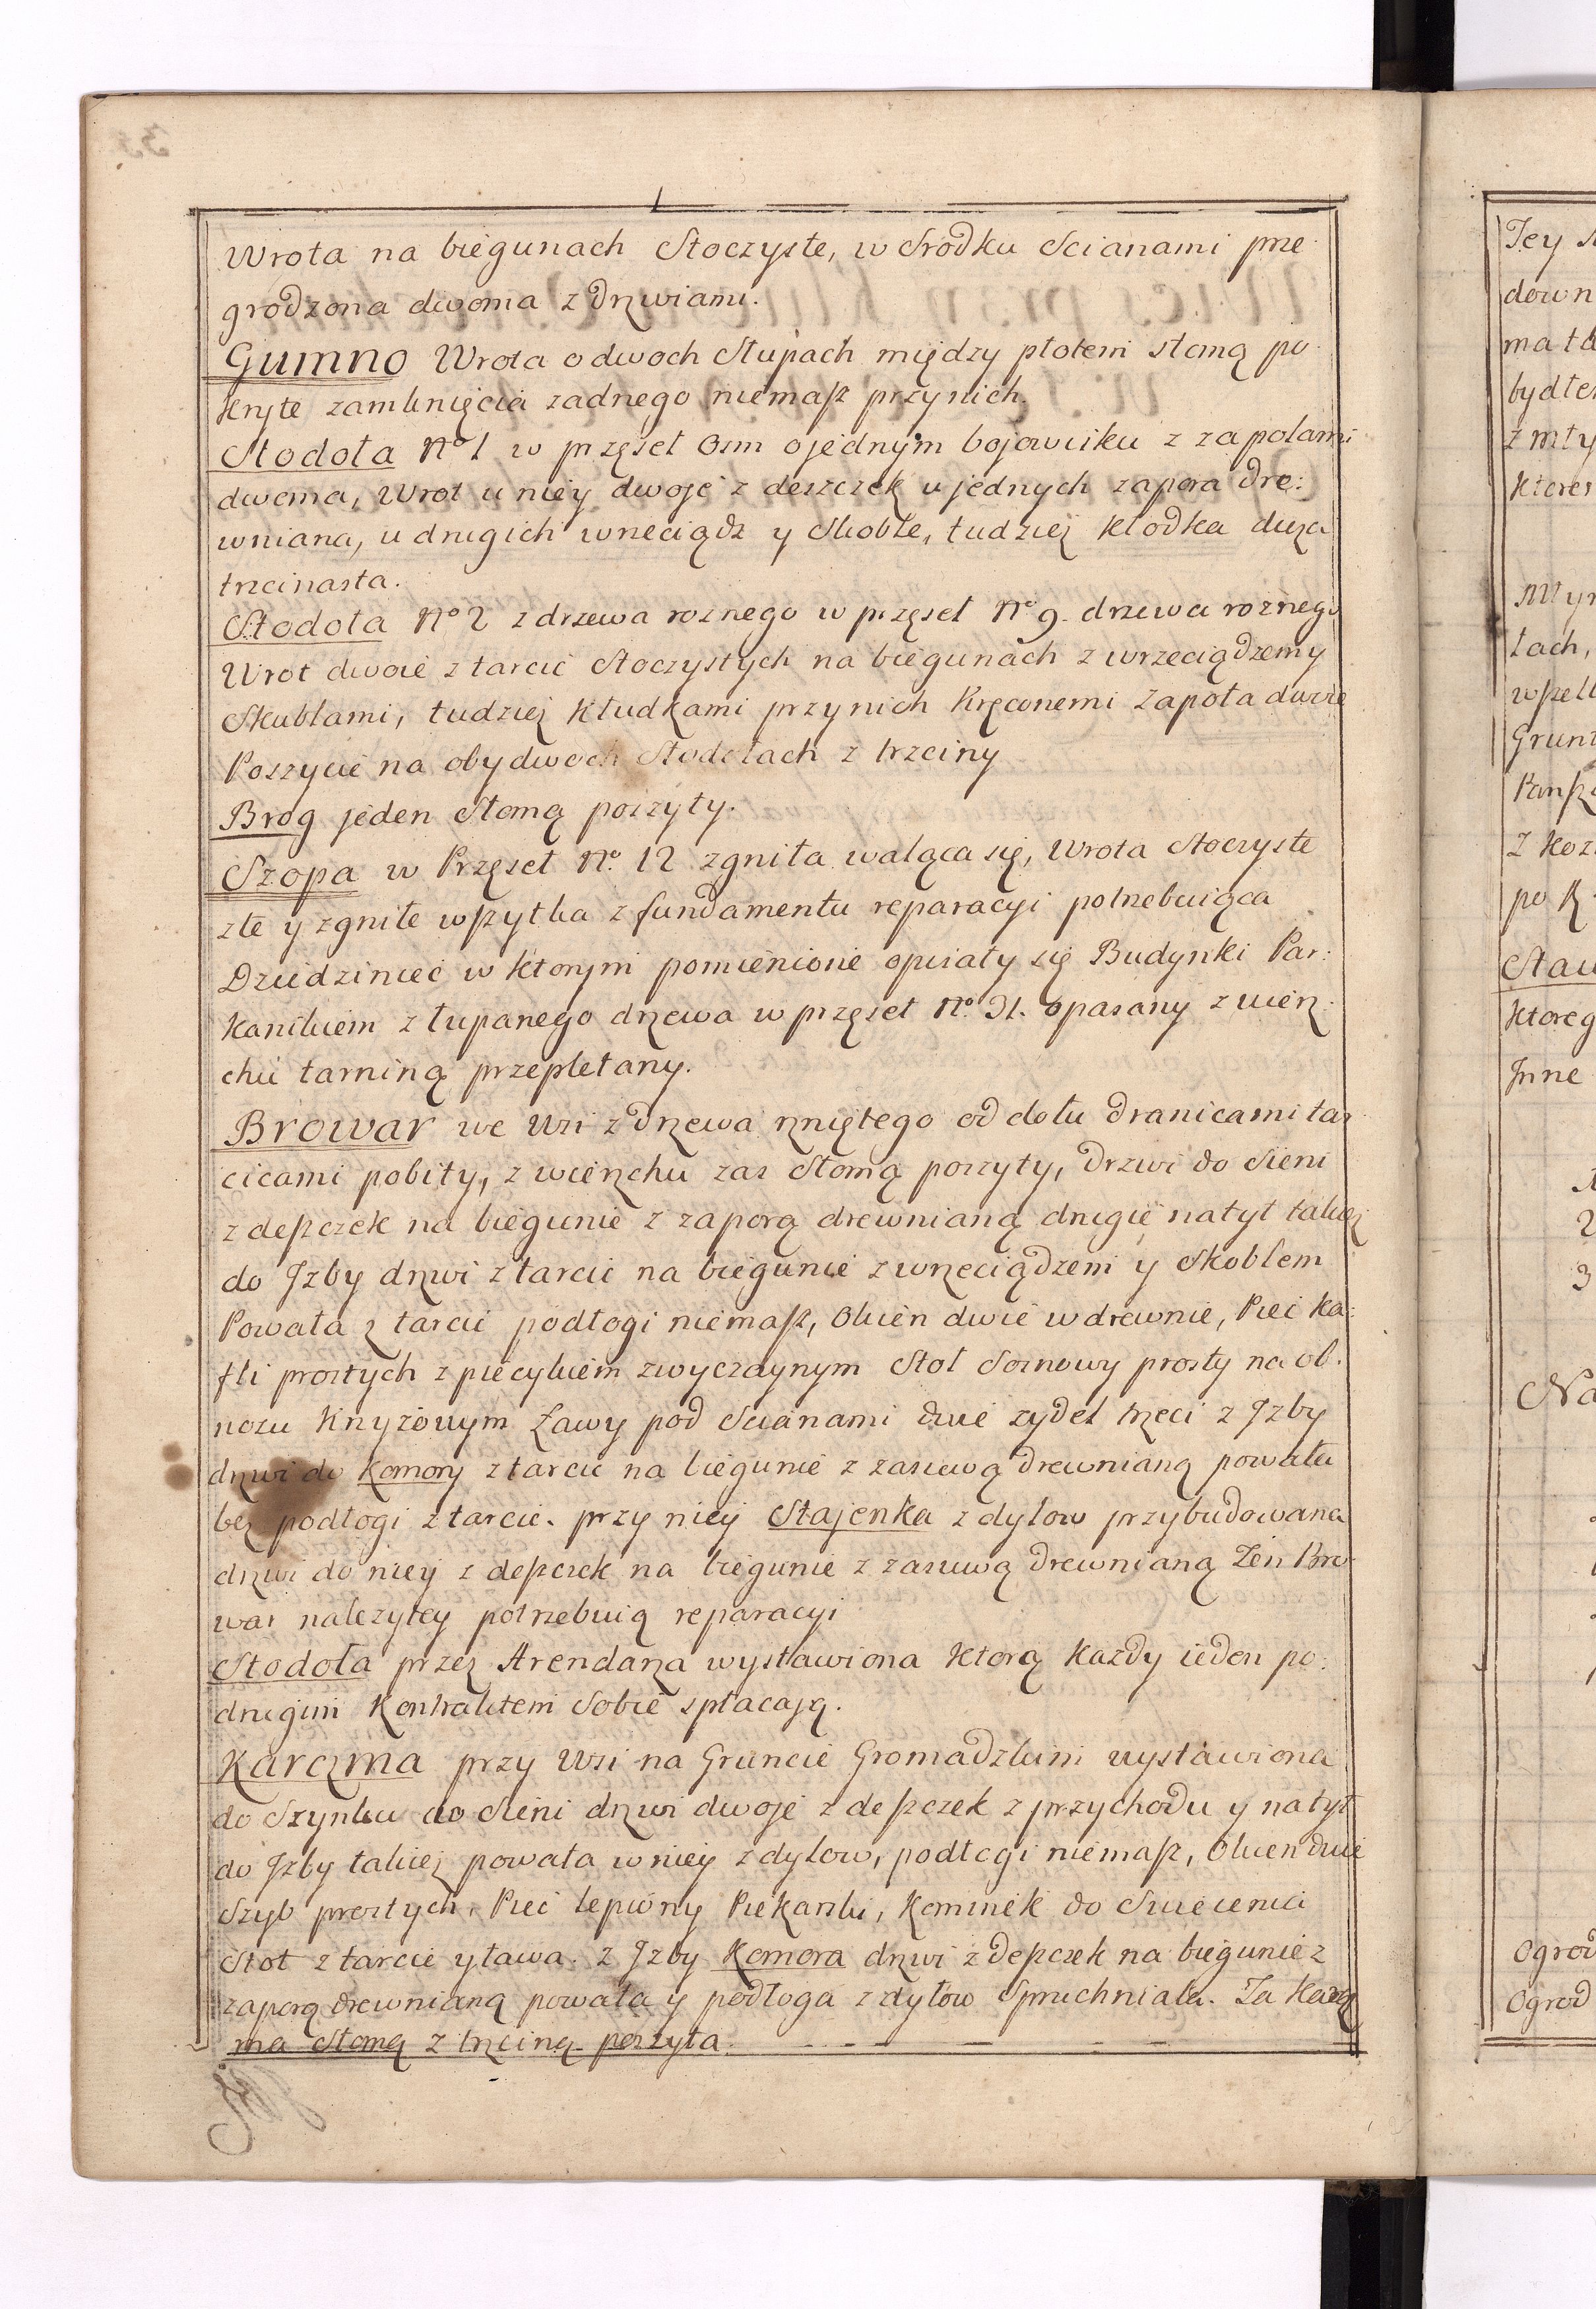 Wrota na biegunach Stoczyste, w Srodku Scianami prze
grodzona dwoma z Drzwiami.
Gumno Wrota o dwoch Słupach między płotem słomą po
kryte zamknięcia zadnego niemasz przynich.
Stodoła No 1 w przęseł Osm o jednym bojowisku z zapolami
dwoma, Wrot u niey dwoje z deszczek u jednych zapora dre:
wniana, u drugich wrzeciądz y Skoble, tudziez kłodka duza
trzcinasta.
Stodoła No 2 z drzewa roznego w przęseł No 9. drzewa roznego
Wrot dwoie z tarcic Stoczystych na biegunach z wrzeciądzemy
Skublami, tudziez kłudkami przynich kręconemi zapola dwie
Poszycie na obydwoch Stodołach z trzciny
Brog jeden Słomą poszyty.
Szopa w Przęseł No. 12 zgniła waląca się, Wrota Stoczyste
złe y zgniłe wszytka z fundamentu reparacyi potrzebuiąca
Dziedziniec w ktorym pomienione opisały się Budynki Par:
kanikiem z łupanego drzewa w przęseł No. 31. opasany z wierz
chu tarniną przepletany.
Browar we Wsi z Drzewa rzniętego od dołu Dranicami tar
cicami pobity, z wierzchu zas Słomą poszyty, Drzwi do Sieni
z deszczek na biegunie z zaporą drewnianą drugie natył takiez
do Jzby drzwi z tarcic na biegunie z wrzeciądzem y Skoblem
Powała z tarcic podłogi niemasz, Okien dwie w drewnie, Piec ka:
fli prostych z piecykiem zwyczaynym Stoł Sosnowy prosty na ob.
nozu Krzyzowym Ławy pod Scianami dwie zydel trzeci z Jzby
drzwi do Komory z tarcic na biegunie z zasuwą Drewnianą powała
bez podłogi z tarcic. przy niey Stajenka z dylow przybudowana
drzwi do niey z deszczek na biegunie z zasuwą Drewnianą Ten Bro
war nalezytey potrzebuią reparacyi
Stodoła przez Arendarza wystawiona ktorą kazdy ieden po:
drugim Kontraktem Sobie spłacają.
Karczma przy Wsi na Gruncie Gromadzkim wystawiona
do Szynku do Sieni drzwi dwoje z deszczek z przychodu y natył
do Jzby takiez powała w niey z dylow, podłogi niemasz, Okien dwie
Szyb prostych, Piec lepiony Piekarski, Kominek do Swiecenia
Stoł z tarcic y ława. z Jzby Komora drzwi z deszczek na biegunie z
zaporą drewnianą powała y podłoga z dylow Spruchniała. Ta Karcz
ma Słomą z trzciną poszyta.